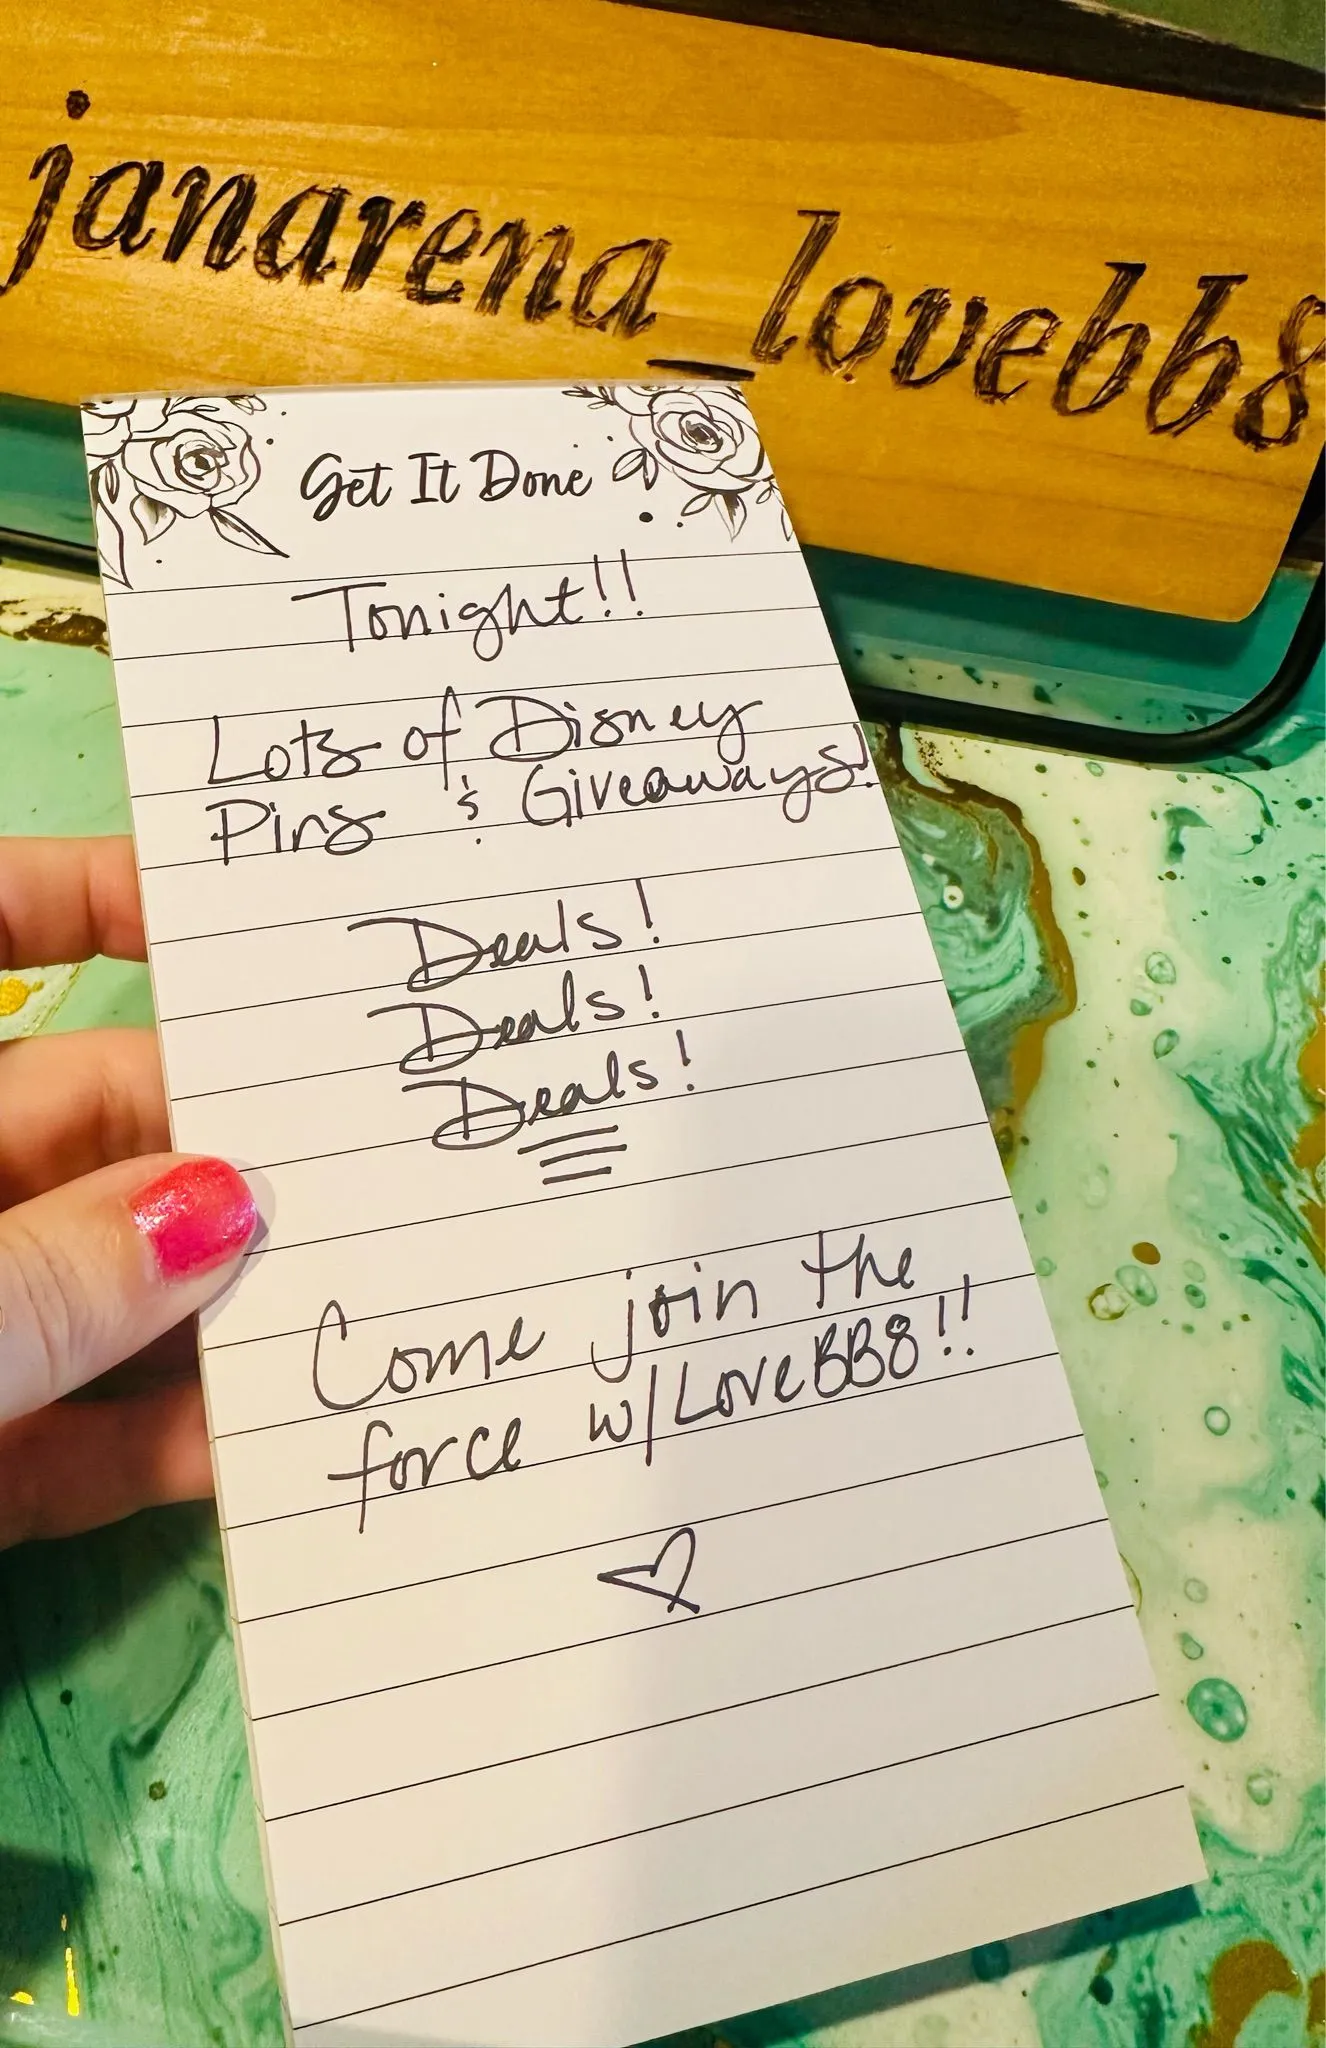 janarena_lovebb8
Get It Done
Tonight!!
Lots of Disney
Pins & Giveaways!
Deals!
Deals!
Deals!
Come join the
force w/LoveBB8!!